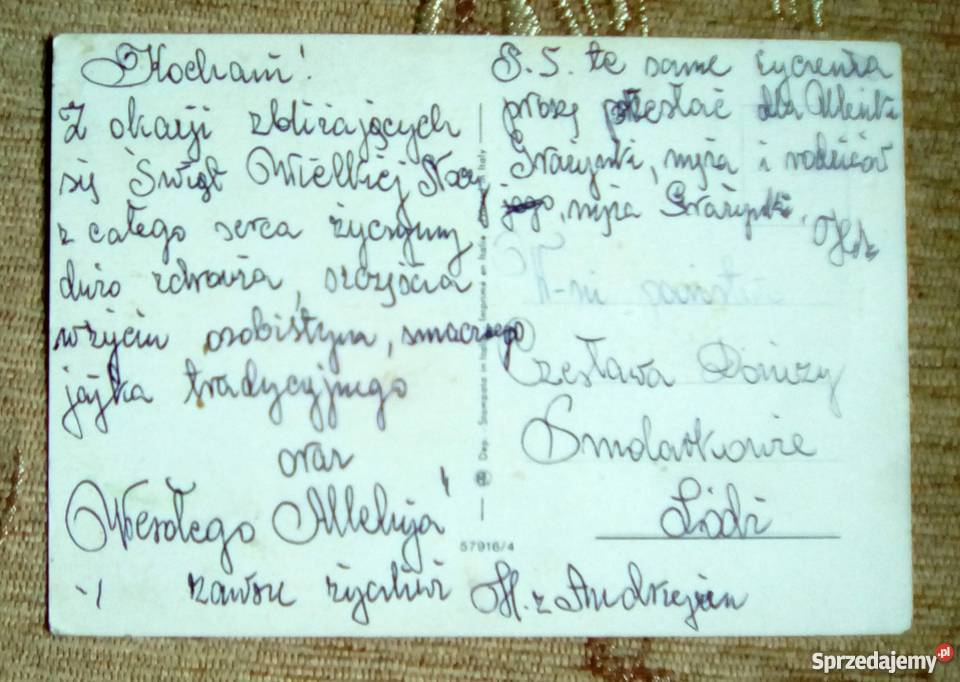 Kochani!
Z okazji zbliżających
się Świąt Wielkiej Nocy
z całego serca życzymy
dużo zdrowia, szczęścia
w życiu osobistym, smacznego
jajka tradycyjnego
oraz
Wesołego Alleluja"
zawsze życzliwi H. z Andrzejem
P.S. te same życzenia
proszę przesłać dla
Grażynki, męża i rodziców
jego, męża Grażynki.
Czesława
Smolarkowie
Łódź
57916/4
Dep. Stampato in Italia Imprimé en Italie Italy
Sprzedajemy.pl